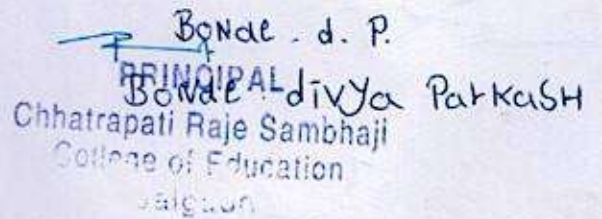 Bonde . d. P.
PRINCIPAL
Bonde divya Parkash
Chhatrapati Raje Sambhaji
College of Education
Jalgaon